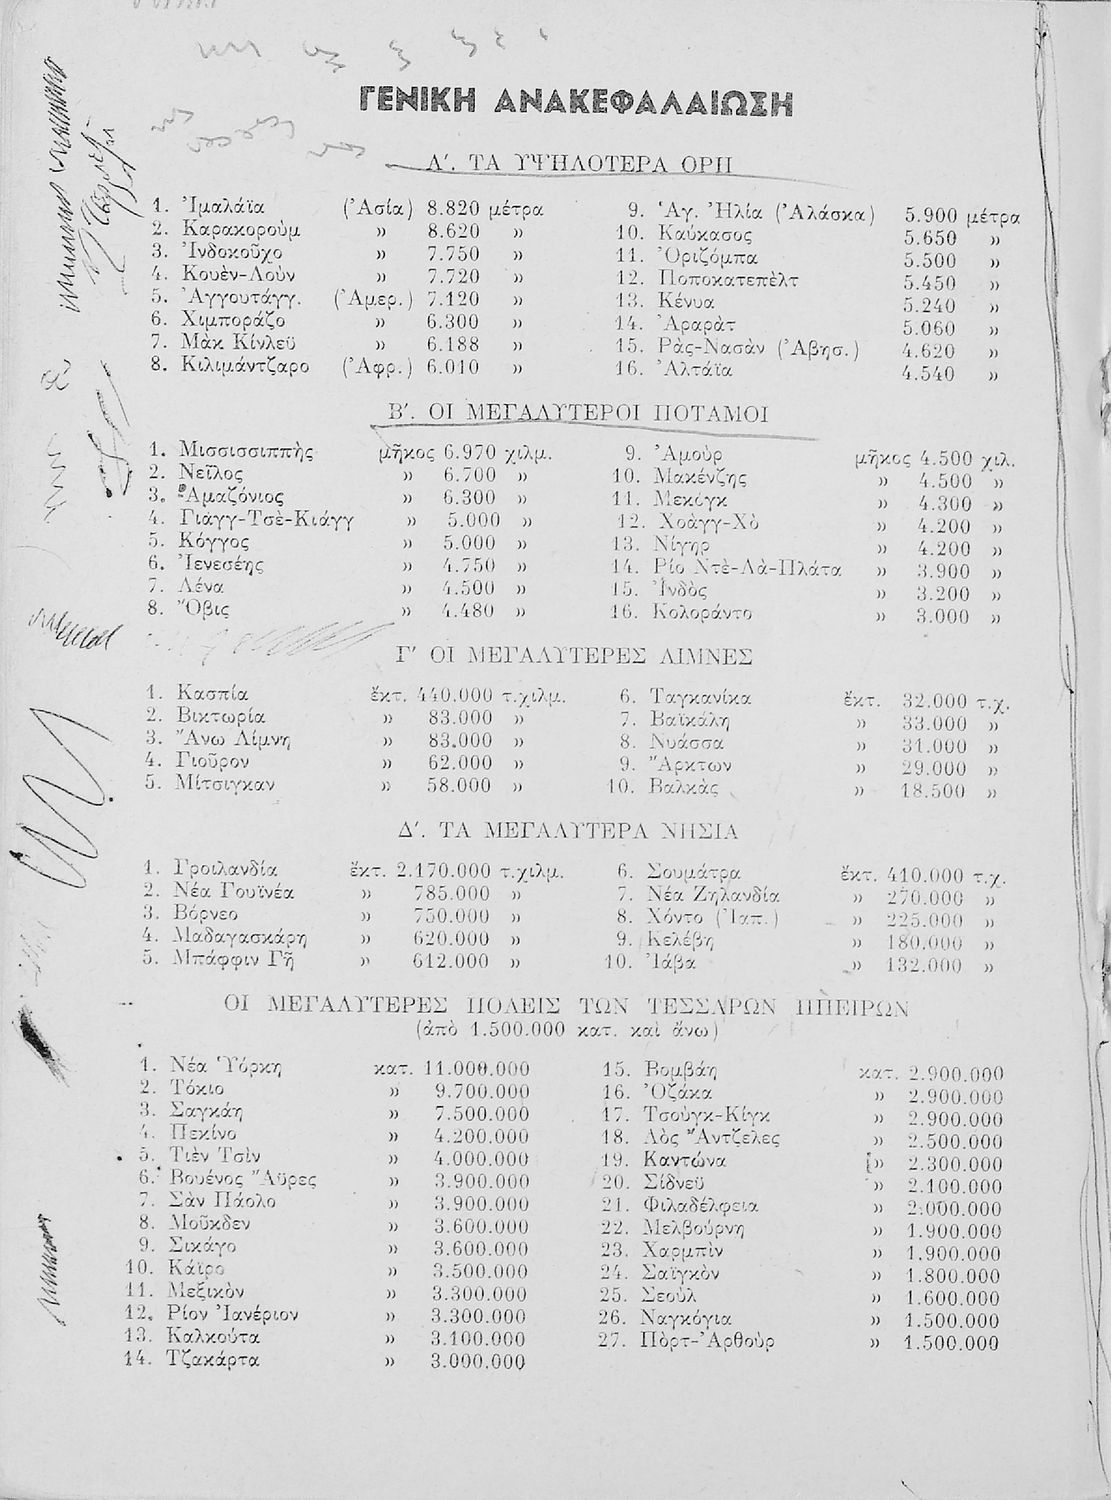 ΓΕΝΙΚΗ ΑΝΑΚΕΦΑΛΑΙΩΣΗ
Α'. ΤΑ ΥΨΗΛΟΤΕΡΑ ΟΡΗ
1. Ἰμαλάϊα (Ἀσία) 8.820 μέτρα
2. Καρακορούμ » 8.620 »
3. Ἰνδοκοῦχο » 7.750 »
4. Κουὲν-Λοὺν » 7.720 »
5. Ἀγγουτάγγ. (Ἀμερ.) 7.120 »
6. Χιμποράζο » 6.300 »
7. Μὰκ Κίνλεϋ » 6.188 »
8. Κιλιμάντζαρο (Ἀφρ.) 6.010 »
9. Ἁγ. Ἠλία (Ἀλάσκα) 5.900 μέτρα
10. Καύκασος 5.650 »
11. Ὀριζόμπα 5.500 »
12. Ποποκατεπὲλτ 5.450 »
13. Κένυα 5.240 »
14. Ἀραρὰτ 5.060 »
15. Ρὰς-Νασὰν (Ἀβησ.) 4.620 »
16. Ἀλτάϊα 4.540 »
Β'. ΟΙ ΜΕΓΑΛΥΤΕΡΟΙ ΠΟΤΑΜΟΙ
1. Μισσισσιππὴς μῆκος 6.970 χιλμ.
2. Νεῖλος » 6.700 »
3. Ἀμαζόνιος » 6.300 »
4. Γιάγγ-Τσὲ-Κιάγγ » 5.000 »
5. Κόγγος » 5.000 »
6. Ἰενεσέης » 4.750 »
7. Λένα » 4.500 »
8. Ὄβις » 4.480 »
9. Ἀμούρ μῆκος 4.500 χιλ.
10. Μακένζης » 4.500 »
11. Μεκόγκ » 4.300 »
12. Χοὰγγ-Χὸ » 4.200 »
13. Νίγηρ » 4.200 »
14. Ρίο Ντὲ-Λὰ-Πλάτα » 3.900 »
15. Ἰνδὸς » 3.200 »
16. Κολοράντο » 3.000 »
Γ' ΟΙ ΜΕΓΑΛΥΤΕΡΕΣ ΛΙΜΝΕΣ
1. Κασπία ἔκτ. 440.000 τ.χιλμ.
2. Βικτωρία » 83.000 »
3. Ἄνω Λίμνη » 83.000 »
4. Γιοῦρον » 62.000 »
5. Μίτσιγκαν » 58.000 »
6. Ταγκανίκα ἔκτ. 32.000 τ.χ.
7. Βαϊκάλη » 33.000 »
8. Νυάσσα » 31.000 »
9. Ἄρκτων » 29.000 »
10. Βαλκὰς » 18.500 »
Δ'. ΤΑ ΜΕΓΑΛΥΤΕΡΑ ΝΗΣΙΑ
1. Γροιλανδία ἔκτ. 2.170.000 τ.χιλμ.
2. Νέα Γουϊνέα » 785.000 »
3. Βόρνεο » 750.000 »
4. Μαδαγασκάρη » 620.000 »
5. Μπάφφιν Γῆ » 612.000 »
6. Σουμάτρα ἔκτ. 410.000 τ.χ.
7. Νέα Ζηλανδία » 270.000 »
8. Χόντο (Ἰαπ.) » 225.000 »
9. Κελέβη » 180.000 »
10. Ἰάβα » 132.000 »
ΟΙ ΜΕΓΑΛΥΤΕΡΕΣ ΠΟΛΕΙΣ ΤΩΝ ΤΕΣΣΑΡΩΝ ΗΠΕΙΡΩΝ
(ἀπὸ 1.500.000 κατ. καὶ ἄνω)
1. Νέα Ὑόρκη κατ. 11.000.000
2. Τόκιο » 9.700.000
3. Σαγκάη » 7.500.000
4. Πεκίνο » 4.200.000
5. Τιὲν Τσὶν » 4.000.000
6. Βουένος Ἄϋρες » 3.900.000
7. Σὰν Πάολο » 3.900.000
8. Μοῦκδεν » 3.600.000
9. Σικάγο » 3.600.000
10. Κάϊρο » 3.500.000
11. Μεξικὸν » 3.300.000
12. Ρίον Ἰανέριον » 3.300.000
13. Καλκούτα » 3.100.000
14. Τζακάρτα » 3.000.000
15. Βομβάη κατ. 2.900.000
16. Ὀζάκα » 2.900.000
17. Τσούγκ-Κίγκ » 2.900.000
18. Λὸς Ἄντζελες » 2.500.000
19. Καντώνα » 2.300.000
20. Σίδνεϋ » 2.100.000
21. Φιλαδέλφεια » 2.000.000
22. Μελβούρνη » 1.900.000
23. Χαρμπὶν » 1.900.000
24. Σαϊγκὸν » 1.800.000
25. Σεοὺλ » 1.600.000
26. Ναγκόγια » 1.500.000
27. Πὸρτ-Ἀρθοὺρ » 1.500.000